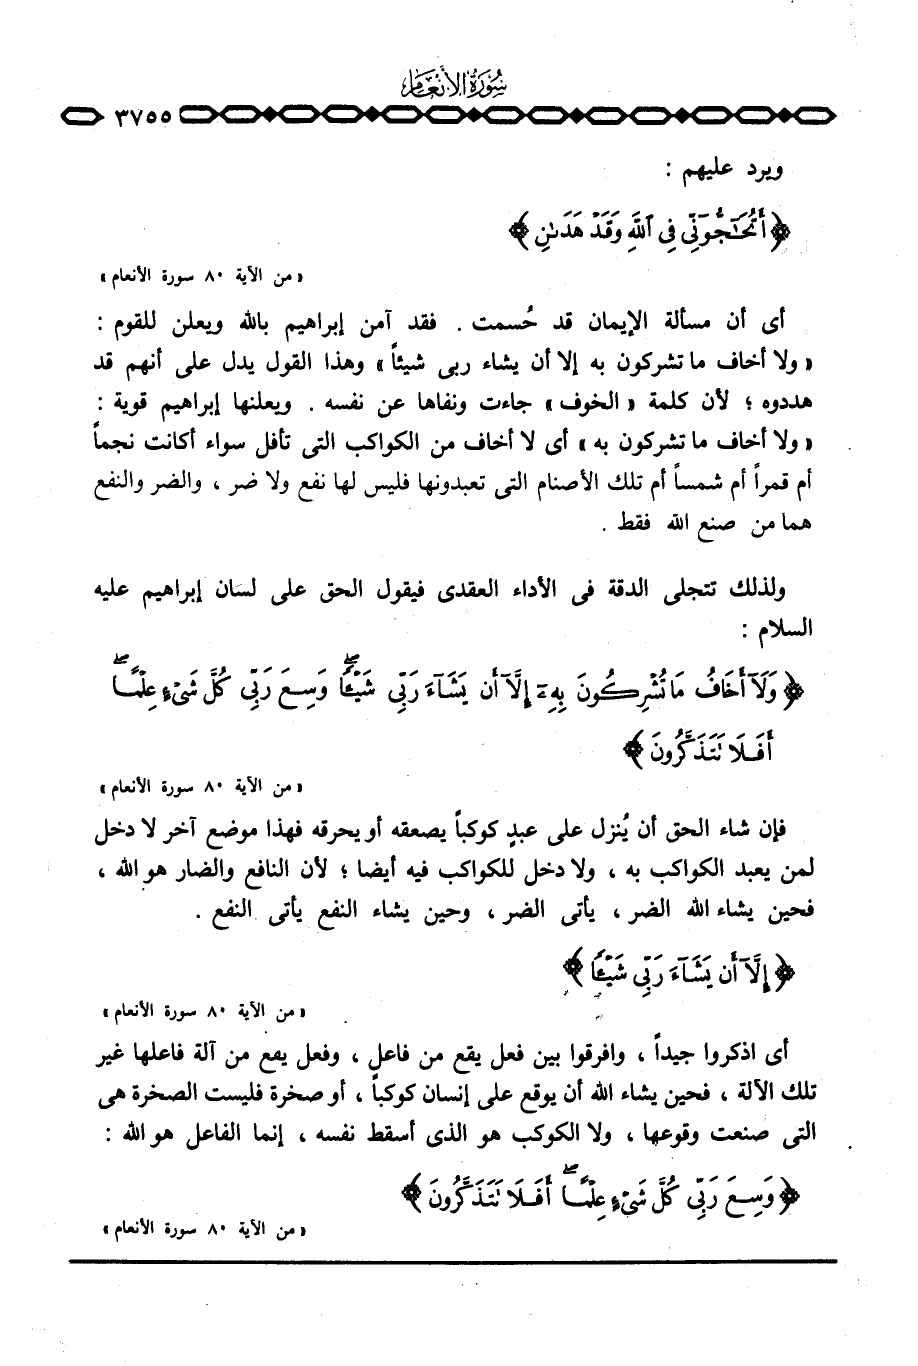 سُورَةُ الأَنْعَامِ
٣٧٥٥
ويرد عليهم :
﴿ أَتُحَٰٓجُّوٓنِّى فِى ٱللَّهِ وَقَدْ هَدَىٰنِ ﴾
« من الآية ٨٠ سورة الأنعام »
أى أن مسألة الإيمان قد حُسمت . فقد آمن إبراهيم بالله ويعلن للقوم :
« ولا أخاف ما تشركون به إلا أن يشاء ربى شيئاً » وهذا القول يدل على أنهم قد
هددوه ؛ لأن كلمة « الخوف » جاءت ونفاها عن نفسه . ويعلنها إبراهيم قوية :
« ولا أخاف ما تشركون به » أى لا أخاف من الكواكب التى تأفل سواء أكانت نجماً
أم قمراً أم شمساً أم تلك الأصنام التى تعبدونها فليس لها نفع ولا ضر ، والضر والنفع
هما من صنع الله فقط .
ولذلك تتجلى الدقة فى الأداء العقدى فيقول الحق على لسان إبراهيم عليه
السلام :
﴿ وَلَآ أَخَافُ مَا تُشْرِكُونَ بِهِۦٓ إِلَّآ أَن يَشَآءَ رَبِّى شَيْـًٔا ۗ وَسِعَ رَبِّى كُلَّ شَىْءٍ عِلْمًا ۗ
أَفَلَا تَتَذَكَّرُونَ ﴾
« من الآية ٨٠ سورة الأنعام »
فإن شاء الحق أن يُنزل على عبدٍ كوكباً يصعقه أو يحرقه فهذا موضع آخر لا دخل
لمن يعبد الكواكب به ، ولا دخل للكواكب فيه أيضا ؛ لأن النافع والضار هو الله ،
فحين يشاء الله الضر ، يأتى الضر ، وحين يشاء النفع يأتى النفع .
﴿ إِلَّآ أَن يَشَآءَ رَبِّى شَيْـًٔا ﴾
« من الآية ٨٠ سورة الأنعام »
أى اذكروا جيداً ، وافرقوا بين فعل يقع من فاعل ، وفعل يقع من آلة فاعلها غير
تلك الآلة ، فحين يشاء الله أن يوقع على إنسان كوكباً ، أو صخرة فليست الصخرة هى
التى صنعت وقوعها ، ولا الكوكب هو الذى أسقط نفسه ، إنما الفاعل هو الله :
﴿ وَسِعَ رَبِّى كُلَّ شَىْءٍ عِلْمًا ۗ أَفَلَا تَتَذَكَّرُونَ ﴾
« من الآية ٨٠ سورة الأنعام »